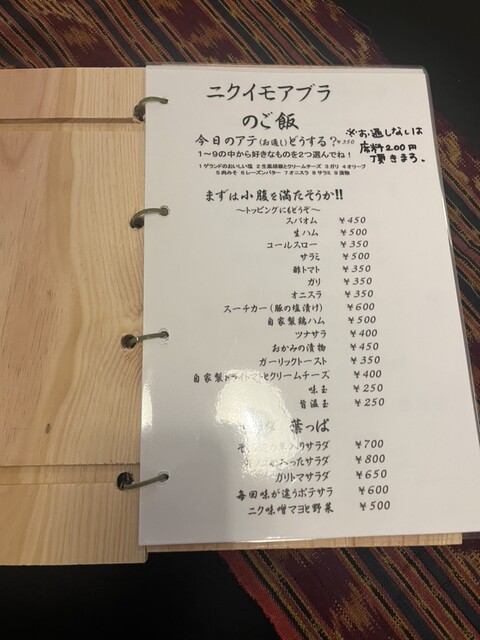 ニクイモアブラ
のご飯
今日のアテ(お通し)どうする?¥350
※お通しなしは
席料200円
頂きまる。
1~9の中から好きなものを2つ選んでね!
1ゲランドのおいしい塩 2生黒胡椒とクリームチーズ 3ガリ 4オリーブ
5肉みそ 6レーズンバター 7オニスラ 8サラミ 9漬物
まずは小腹を満たそうか!!
~トッピングにもどうぞ~
スパオム ¥450
生ハム ¥500
コールスロー ¥350
サラミ ¥500
酢トマト ¥350
ガリ ¥350
オニスラ ¥350
スーチカー(豚の塩漬け) ¥600
自家製鶏ハム ¥500
ツナサラ ¥400
おかみの漬物 ¥450
ガーリックトースト ¥350
自家製ドライトマトとクリームチーズ ¥400
味玉 ¥250
旨温玉 ¥250
葉っぱ
サラダ ¥700
入ったサラダ ¥800
カリトマサラダ ¥650
毎回味が違うポテサラ ¥600
ニク味噌マヨと野菜 ¥500